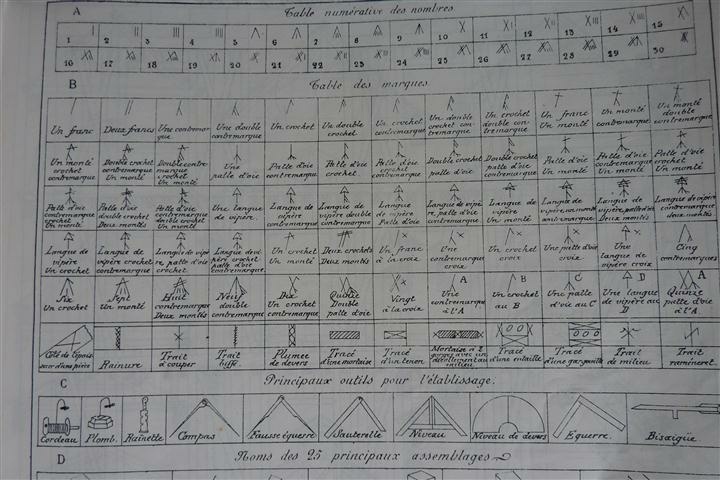 A
Table numérative des nombres
1 2 3 4 5 6 7 8 9 10 11 12 13 14 15
16 17 18 19 20 21 22 23 24 25 26 27 28 29 30
B
Table des marques
Un franc
Deux francs
Une contremarque
Une double contremarque
Un crochet
Un double crochet
Un crochet contremarque
Un double crochet contremarque
Un crochet double contremarque
Un franc Un monté
Un monté contremarque
Un monté double contremarque
Un monté crochet contremarque
Double crochet contremarque Un monté
Double contremarque crochet Un monté
Une patte d'oie
Patte d'oie contremarque
Patte d'oie crochet
Patte d'oie crochet contremarque
Double crochet patte d'oie
Double crochet contremarque patte d'oie
Patte d'oie Un monté
Patte d'oie contremarque Un monté
Patte d'oie crochet Un monté
Patte d'oie contremarque crochet Un monté
Patte d'oie double crochet Deux montés
Patte d'oie contremarque double crochet Un monté
Une langue de vipère
Langue de vipère contremarque
Langue de vipère double contremarque
Langue de vipère Patte d'oie
Langue de vipère, patte d'oie contremarque
Langue de vipère Un monté
Langue de vipère
Langue de vipère, patte d'oie Un monté
Langue de vipère contremarque deux montés
Langue de vipère Un crochet
Langue de vipère crochet contremarque
Langue de vipère, patte d'oie Un crochet
Langue de vipère crochet patte d'oie contremarque
Un crochet Un monté
Deux crochets Deux montés
Un franc à la croix
Une contremarque croix
Un crochet croix
Une patte d'oie croix
Une langue de vipère croix
Cinq contremarques
Six Un crochet
Sept Un monté
Huit contremarque Deux montés
Neuf double contremarque
Dix Un crochet contremarque
Quinze Double patte d'oie
Vingt à la croix
A Une contremarque à l'A
B Un crochet au B
C Une patte d'oie au C
D Une langue de vipère au D
A Quinze patte d'oie à l'A
Rainure
Trait à couper
Trait biffé.
Plumée de devers
Tracé d'une mortaise
Tracé d'un tenon
Mortaise à 2 gorges avec un décolement au milieu
Tracé d'une entaille
Tracé d'une gargouille
Trait de milieu
Trait rameneret.
C
Principaux outils pour l'établissage.
Cordeau
Plomb.
Rainette
Compas
Fausse équerre
Sauterelle
Niveau
Niveau de devers
Equerre.
Bisaigüe
D
Noms des 25 principaux assemblages